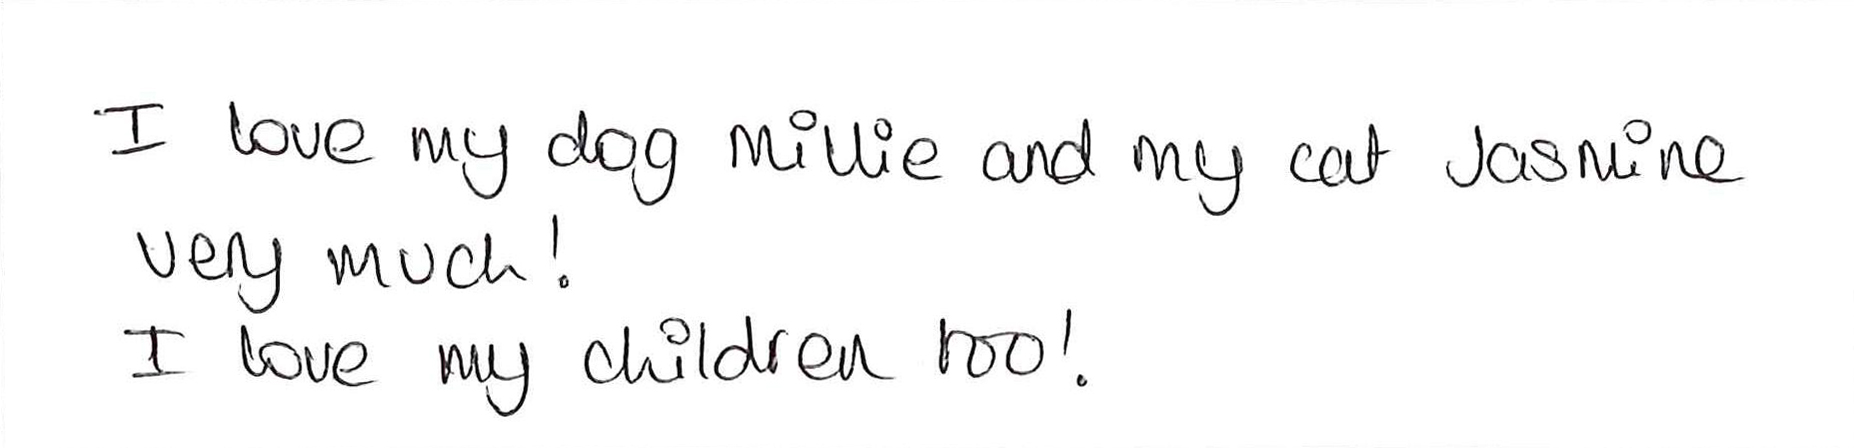 I love my dog Millie and my cat Jasmine
very much!
I love my children too!